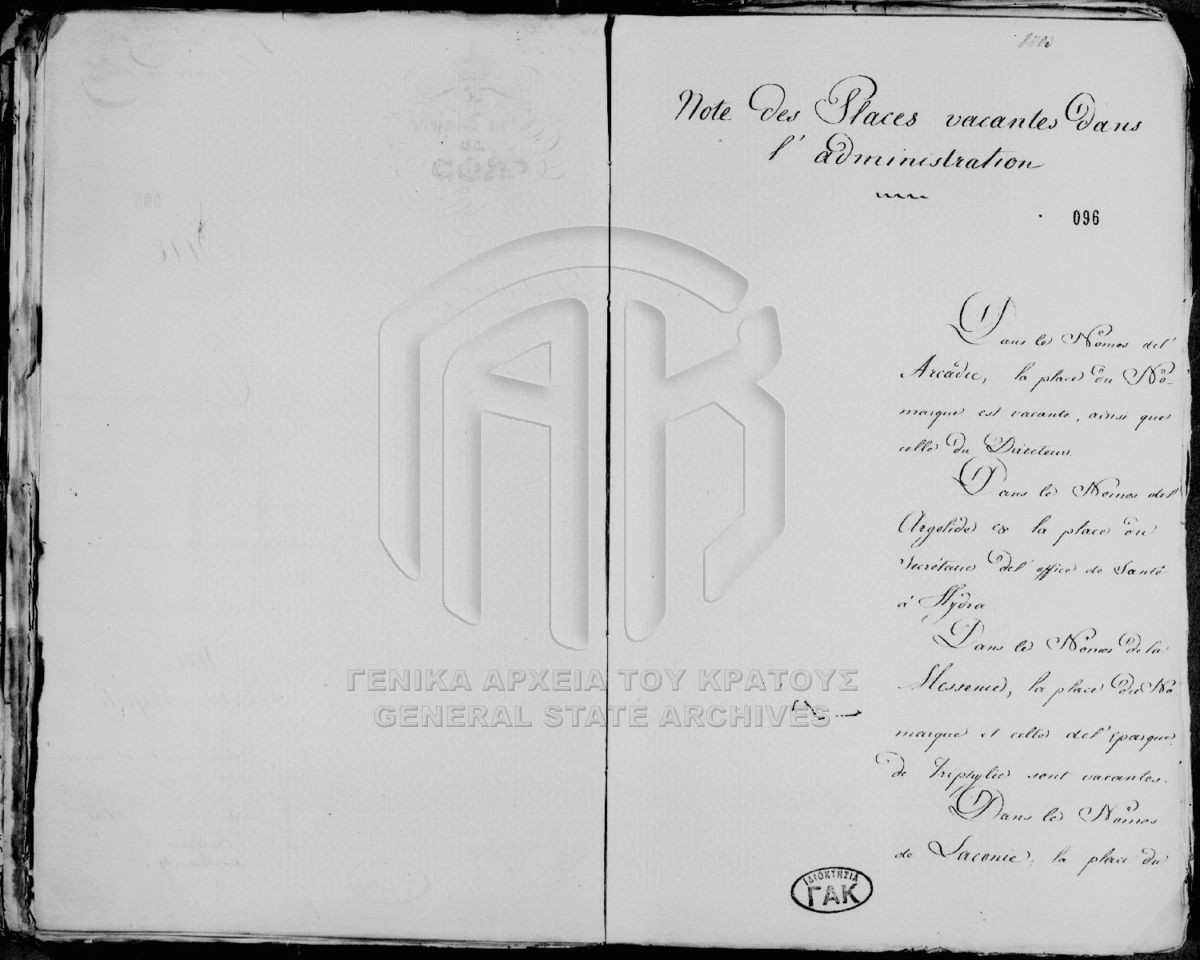 Note des Places vacantes dans
l'administration
096
Dans le Nomos de l'
Arcadie, la place du No-
marque est vacante, ainsi que
celle du Directeur.
Dans le Nomos de l'
Argolide es la place du
Secrétaire de l'office de Santé
à Hydra
Dans le Nomos de la
Messenie, la place du No
marque et celle de l'Eparque
de Triphylie sont vacantes.
Dans le Nomos
de Laconie, la place du
ΓΕΝΙΚΑ ΑΡΧΕΙΑ ΤΟΥ ΚΡΑΤΟΥΣ
GENERAL STATE ARCHIVES
ΙΔΙΟΚΤΗΣΙΑ
ΓΑΚ